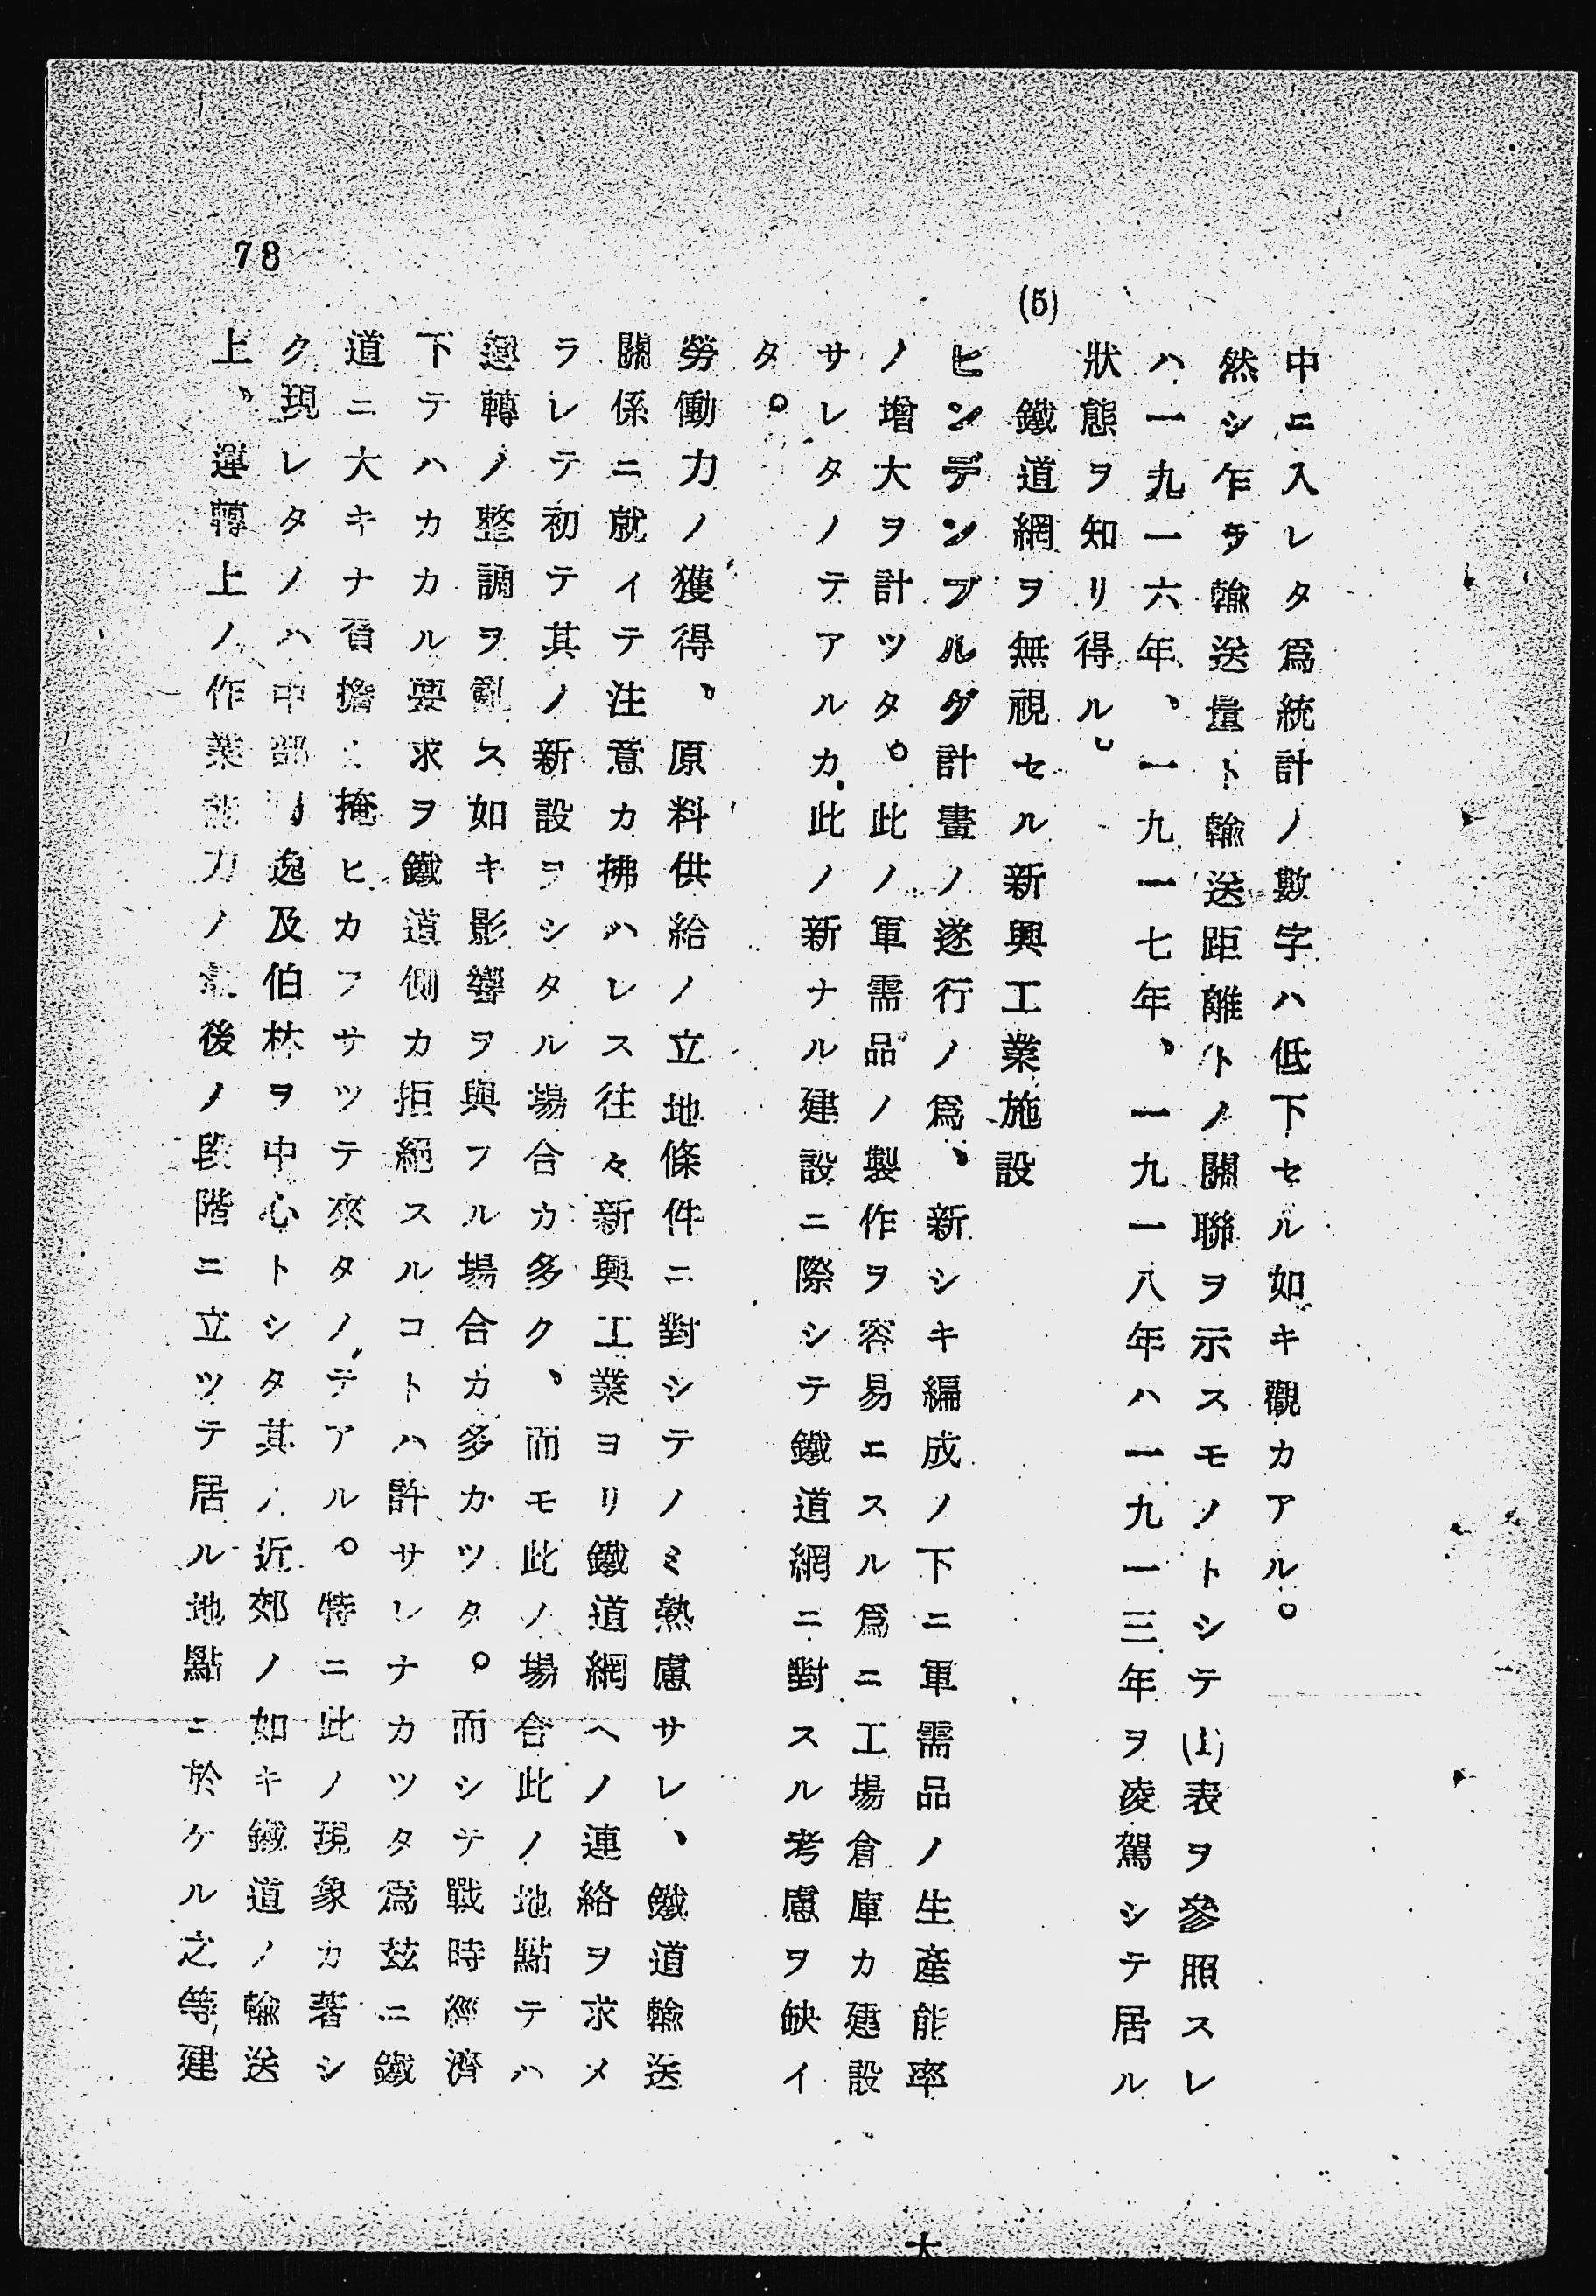 中ニ入レタ爲統計ノ數字ハ低下セル如キ觀カアル。
然シ乍ラ輸送量ト輸送距離トノ關聯ヲ示スモノトシテ(1)表ヲ參照スレ
ハ一九一六年、一九一七年、一九一八年ハ一九一三年ヲ凌駕シテ居ル
狀態ヲ知リ得ル。
(5)
鐵道網ヲ無視セル新興工業施設
ヒンデンブルグ計畫ノ遂行ノ爲、新シキ編成ノ下ニ軍需品ノ生產能率
ノ增大ヲ計ツタ。此ノ軍需品ノ製作ヲ容易ニスル爲ニ工場倉庫カ建設
サレタノテアルカ、此ノ新ナル建設ニ際シテ鐵道網ニ對スル考慮ヲ缺イ
タ。
勞働力ノ獲得、原料供給ノ立地條件ニ對シテノミ熟慮サレ、鐵道輸送
關係ニ就イテ注意カ拂ハレス往々新興工業ヨリ鐵道網ヘノ連絡ヲ求メ
ラレテ初テ其ノ新設ヲシタル場合カ多ク、而モ此ノ場合此ノ地點テハ
運轉ノ整調ヲ亂ス如キ影響ヲ與フル場合カ多カツタ。而シテ戰時經濟
下テハカカル要求ヲ鐵道側カ拒絕スルコトハ許サレナカツタ爲玆ニ鐵
道ニ大キナ負擔ヲ掩ヒカフサツテ來タノテアル。特ニ此ノ現象カ著シ
ク現レタノハ中部獨逸及伯林ヲ中心トシタ其ノ近郊ノ如キ鐵道ノ輸送
上、運轉上ノ作業能力ノ最後ノ段階ニ立ツテ居ル地點ニ於ケル之等建
78
大